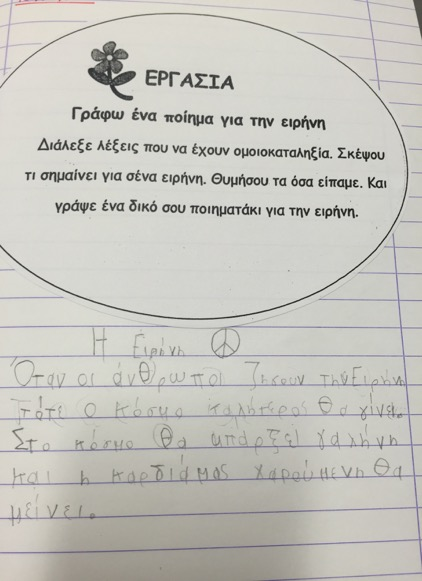 ΕΡΓΑΣΙΑ
Γράφω ένα ποίημα για την ειρήνη
Διάλεξε λέξεις που να έχουν ομοιοκαταληξία. Σκέψου
τι σημαίνει για σένα ειρήνη. Θυμήσου τα όσα είπαμε. Και
γράψε ένα δικό σου ποιηματάκι για την ειρήνη.
Η Ειρήνη
Όταν οι άνθρωποι ζήσουν την Ειρήνη
τότε ο κόσμο καλήτερος θα γίνει.
Στο κόσμο θα υπάρξει γαλήνη
και η καρδιά μας χαρούμενη θα
μείνει.